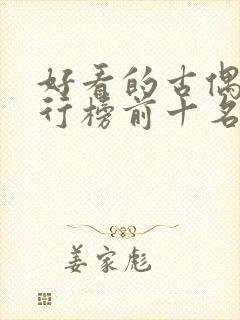 好看的古偶
行榜前十名
姜家彪